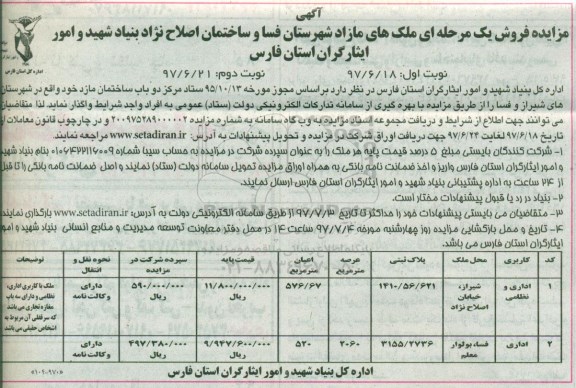 آگهی
مزایده فروش یک مرحله ای ملک های مازاد شهرستان فسا و ساختمان اصلاح نژاد بنیاد شهید و امور
ایثارگران استان فارس
اداره کل استان فارس
نوبت اول: ۹۷/۶/۱۸ نوبت دوم: ۹۷/۶/۲۱
اداره کل بنیاد شهید و امور ایثارگران استان فارس در نظر دارد براساس مجوز مورخه ۹۵/۱۰/۱۳ ستاد مرکز دو باب ساختمان مازاد خود واقع در شهرستان
های شیراز و فسا را از طریق مزایده با بهره گیری از سامانه تدارکات الکترونیکی دولت (ستاد) عمومی به افراد واجد شرایط واگذار نماید. لذا متقاضیان
می توانند جهت اطلاع از شرایط و دریافت مجموعه اسناد مزایده به وب گاه سامانه به شماره مزایده و در چارچوب قانون معاملات از
تاریخ ۹۷/۶/۱۸ لغایت ۹۷/۶/۲۴ جهت دریافت اوراق شرکت در مزایده و تحویل پیشنهادات به آدرس: www.setadiran.ir مراجعه نمایند.
۱- شرکت کنندگان بایستی مبلغ ۵ درصد قیمت پایه هر ملک را به عنوان سپرده شرکت در مزایده به حساب سیبا شماره بنام بنیاد شهید
و امور ایثارگران استان فارس واریز و اخذ ضمانت نامه بانکی به همراه اوراق مزایده تحویل سامانه دولت (ستاد) نمایند و اصل ضمانت نامه بانکی را تا قبل
از ۲۴ ساعت به اداره پشتیبانی بنیاد شهید و امور ایثارگران استان فارس ارسال نمایند.
۲- بنیاد در رد یا قبول پیشنهادات مختار است.
۳- متقاضیان می بایستی پیشنهادات خود را حداکثر تا تاریخ ۹۷/۷/۳ از طریق سامانه الکترونیکی دولت به آدرس: www.setadiran.ir بارگذاری نمایند
و تاریخ و محل بازگشایی مزایده روز چهارشنبه مورخه ۹۷/۷/۴ ساعت ۱۴ در محل دفتر معاونت توسعه مدیریت و منابع انسانی بنیاد شهید و امور
ایثارگران استان فارس می باشد.
کد کاربری محل ملک پلاک ثبتی عرصه مترمربع اعیان مترمربع قیمت پایه سپرده شرکت در مزایده نحوه نقل و انتقال توضیحات
۱ اداری و نظامی شیراز، خیابان اصلاح نژاد ۱۴۱۰/۵۶/۶۲۱ ۵۷۶/۶۷ ۱۱/۸۰۰/۰۰۰/۰۰۰ ریال ۵۹۰/۰۰۰/۰۰۰ ریال دارای وکالت نامه
۲ اداری فسا، بولوار معلم ۳۱۵۵/۲۷۳۶ ۲۰۶۰ ۵۲۰ ۹/۹۴۷/۶۰۰/۰۰۰ ریال ۴۹۷/۳۸۰/۰۰۰ ریال دارای وکالت نامه
اداره کل بنیاد شهید و امور ایثارگران استان فارس